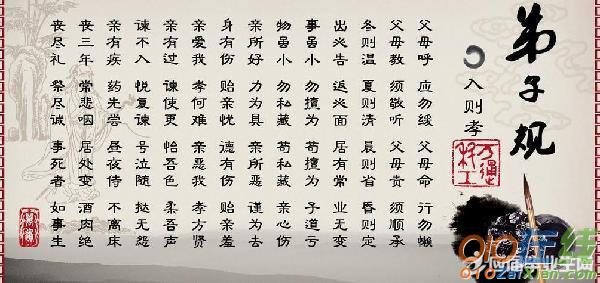 弟子规
入则孝
父母呼 应勿缓 父母命 行勿懒
父母教 须敬听 父母责 须顺承
冬则温 夏则清 晨则省 昏则定
出必告 返必面 居有常 业无变
事虽小 勿擅为 苟擅为 子道亏
物虽小 勿私藏 苟私藏 亲心伤
亲所好 力为具 亲所恶 谨为去
身有伤 贻亲忧 德有伤 贻亲羞
亲爱我 孝何难 亲恶我 孝方贤
亲有过 谏使更 怡吾色 柔吾声
谏不入 悦复谏 号泣随 挞无怨
亲有疾 药先尝 昼夜侍 不离床
丧三年 常悲咽 居处变 酒肉绝
丧尽礼 祭尽诚 事死者 如事生
910在线
910zaixian.com